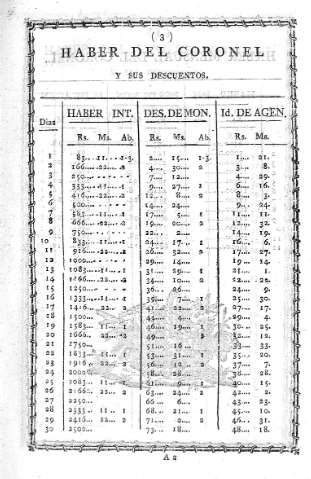 (3)
HABER DEL CORONEL
Y SUS DESCUENTOS.
HABER INT. DES. DE MON. Id. DE AGEN.
Dias Rs. Ms. Ab. Rs. Ms. Ab. Rs. Ms.
1 83...11...1-3. 2.... 15.... 1-3. 1.... 21.
2 166...22...2 4.... 30.... 2 3.... 8.
3 250 7.... 12.... 4.... 29.
4 333...11...1 9.... 27.... 1 6.... 16.
5 416...22...2 12.... 8.... 2 8.... 3.
6 500 14.... 24.... 9.... 24.
7 583...11...1 17.... 5.... 1 11.... 11.
8 666...22...2 12.... 32.
9 750 22.... 2.... 14.... 19.
10 833...11...1 24.... 17.... 1 16.... 6.
11 916...22...2 26.... 32.... 2 17.... 27.
12 1000 29.... 14.... 19.... 14.
13 1083...11...1 31.... 29.... 1 21.... 1.
14 1166...22...2 34.... 10.... 2 22.... 22.
15 1250 36.... 26.... 24.... 9.
16 1333...11...1 39.... 7.... 1 25.... 30.
17 1416...22...2 41.... 22.... 2 27.... 17.
18 1500 44.... 4.... 29.... 4.
19 1583...11...1 46.... 19.... 1 30.... 25.
20 1666...22...2 49.... 2 32.... 12.
21 1750 51.... 16.... 33.... 33.
22 1833...11...1 53.... 31.... 1 35.... 20.
23 1916...22...2 56.... 12.... 2 37.... 7.
24 2000 58.... 28.... 38.... 28.
25 2083...11...1 61.... 9.... 1 40.... 15.
26 2166...22...2 63.... 24.... 2 42.... 2.
27 2250 66.... 6.... 43.... 23.
28 2333...11...1 68.... 21.... 1 45.... 10.
29 2416...22...2 71.... 2.... 2 46.... 31.
30 2500 73.... 18.... 48.... 18.
A 2